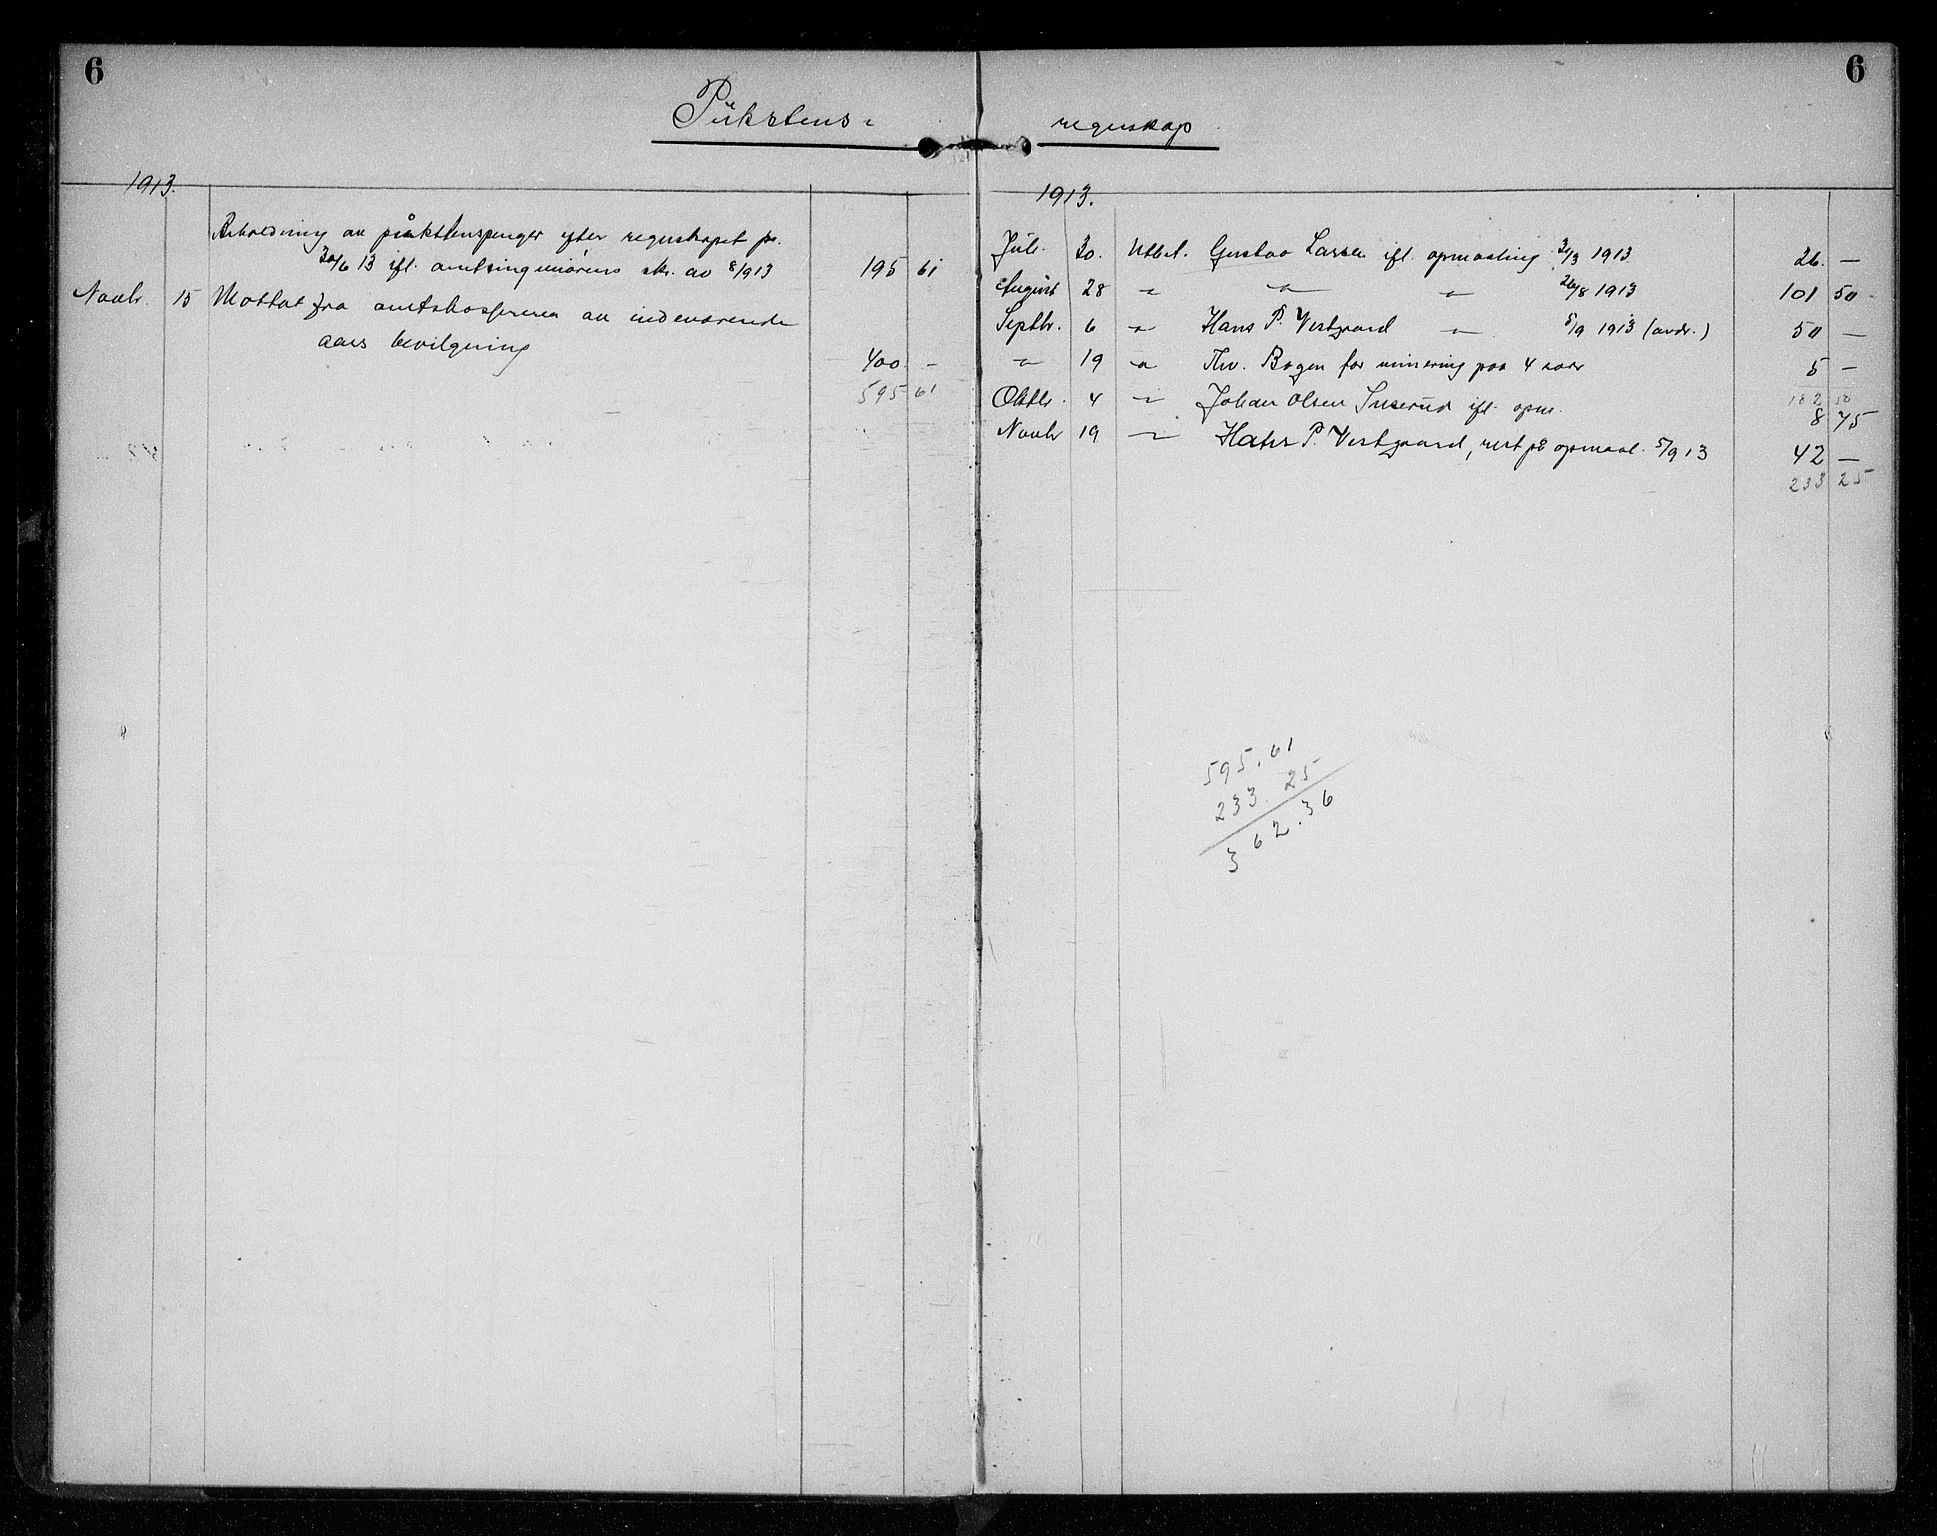 6
6
Pukstens-
regnskap
1913.
Beholdning av pukstenspenger efter regnskapet pr.
30/6 13 ifl. amtsingeniørens skr. av 8/9 13 195 61
Novbr. 15 Mottat fra amtskassereren av indeværende
aars bevilgning 400 -
595 61
1913.
Juli 30. Utbet. Gustav Larsen ifl. opmaaling 1913 26. —
August 28 " " " 26/8 1913 101 50
Septbr. 6 " Hans P. Vestgaard " 5/9 1913 (avdr.) 50 —
" 19 " Thv. Bogen for minering paa 4 5 —
182 50
Oktbr. 4 " Johan Olsen ifl. opm. 8 75
Novbr 19 " Hans P. Vestgaard, rest på opmaal. 5/9 13 42 —
233 25
595.61
233 25
362.36